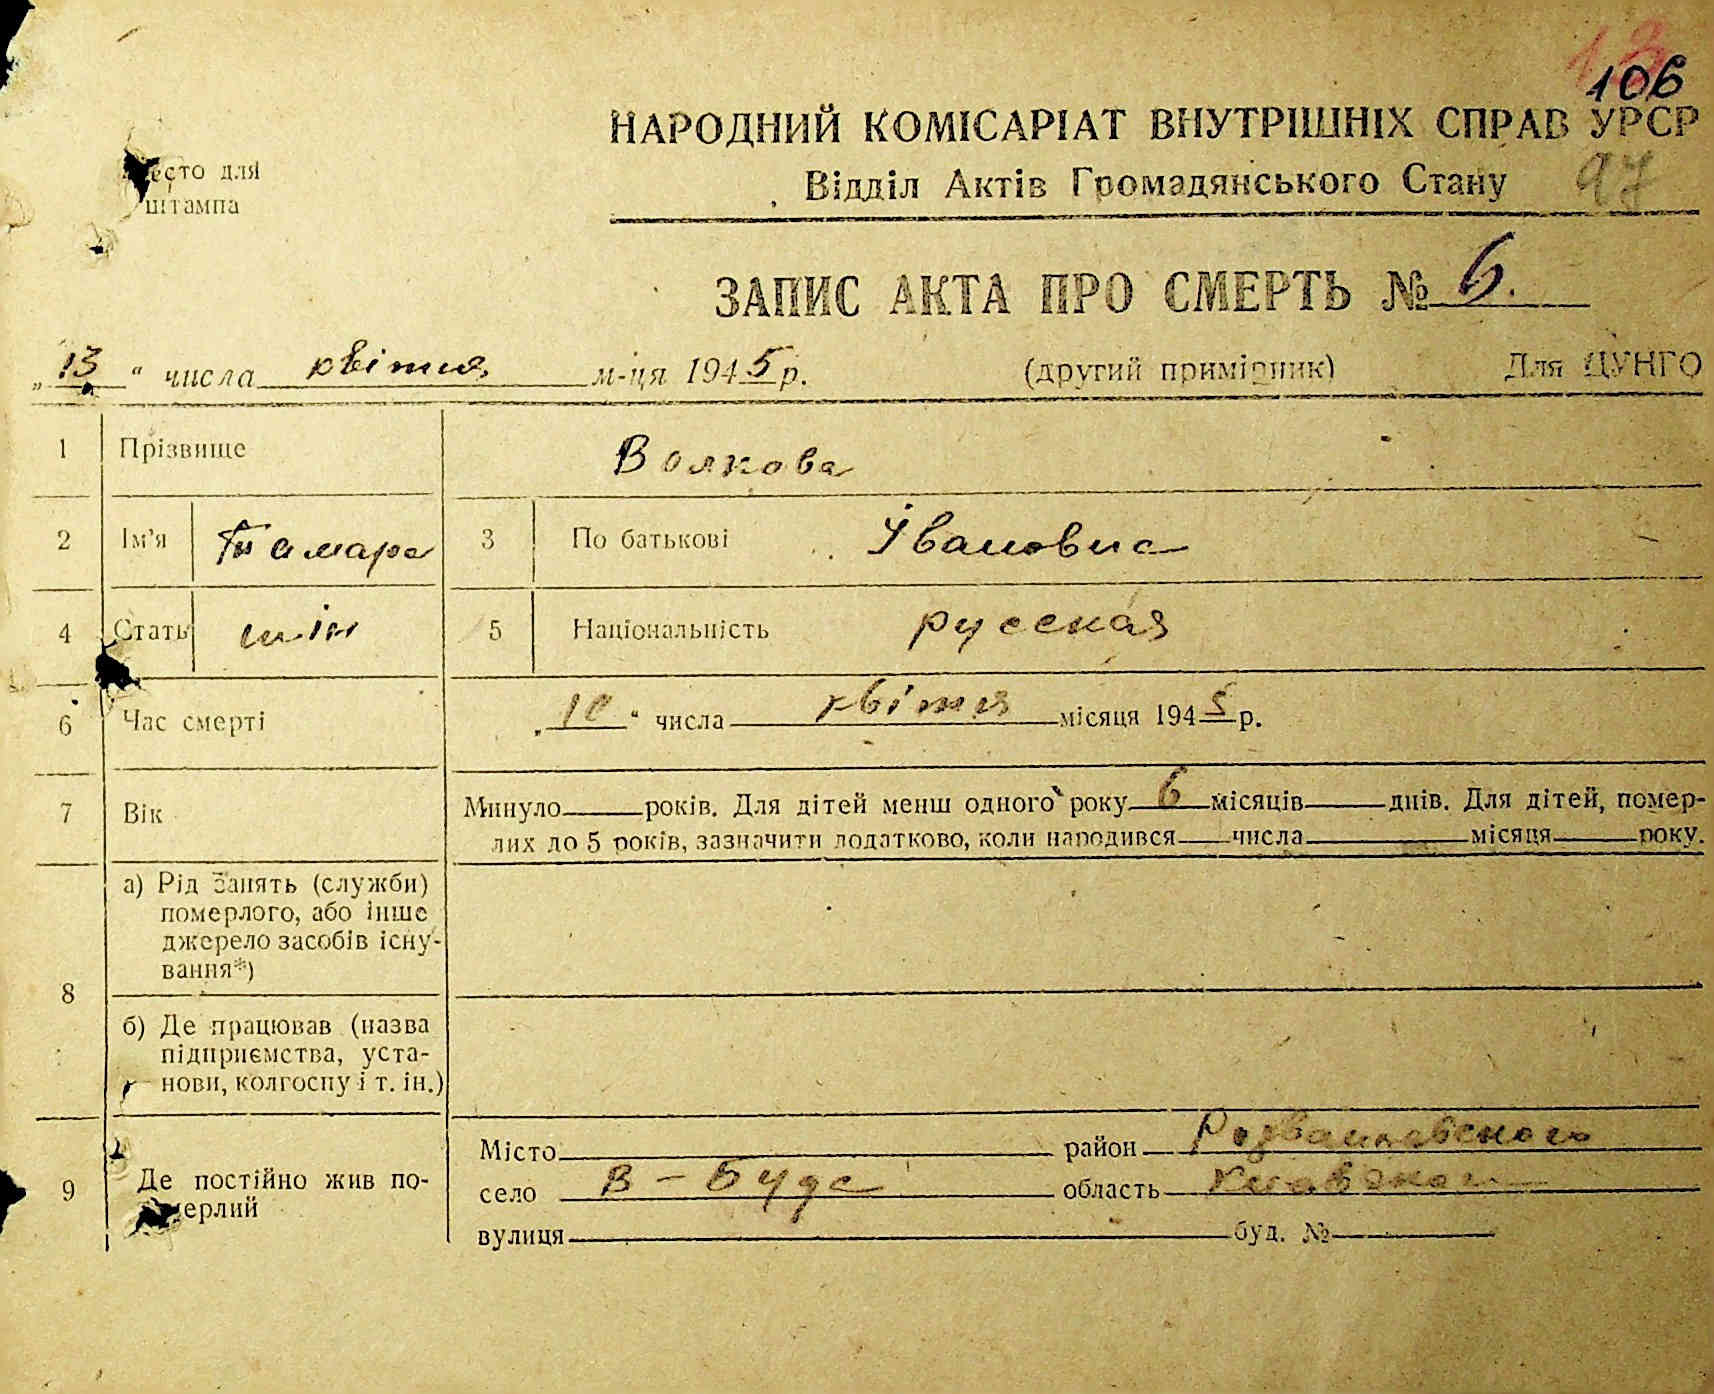 106
НАРОДНИЙ КОМІСАРІАТ ВНУТРІШНІХ СПРАВ УРСР
Відділ Актів Громадянського Стану 97
Место для
штампа
ЗАПИС АКТА ПРО СМЕРТЬ № 6.
„13“ числа квітня м-ця 1945 р. (другий примірник) Для ЦУНГО
1 Прізвище Волкова
2 Ім'я Тамара 3 По батькові Івановна
4 Стать жін 5 Національність русская
6 Час смерті „10“ числа квітня місяця 1945 р.
7 Вік Минуло років. Для дітей менш одного року 6 місяців днів. Для дітей, помер-
лих до 5 років, зазначити додатково, коли народився числа місяця року.
8 а) Рід занять (служби)
померлого, або інше
джерело засобів існу-
вання*)
б) Де працював (назва
підприємства, уста-
нови, колгоспу і т. ін.)
9 Де постійно жив по-
мерлий
Місто район Розважевского
село В-Буда область
вулиця буд. №